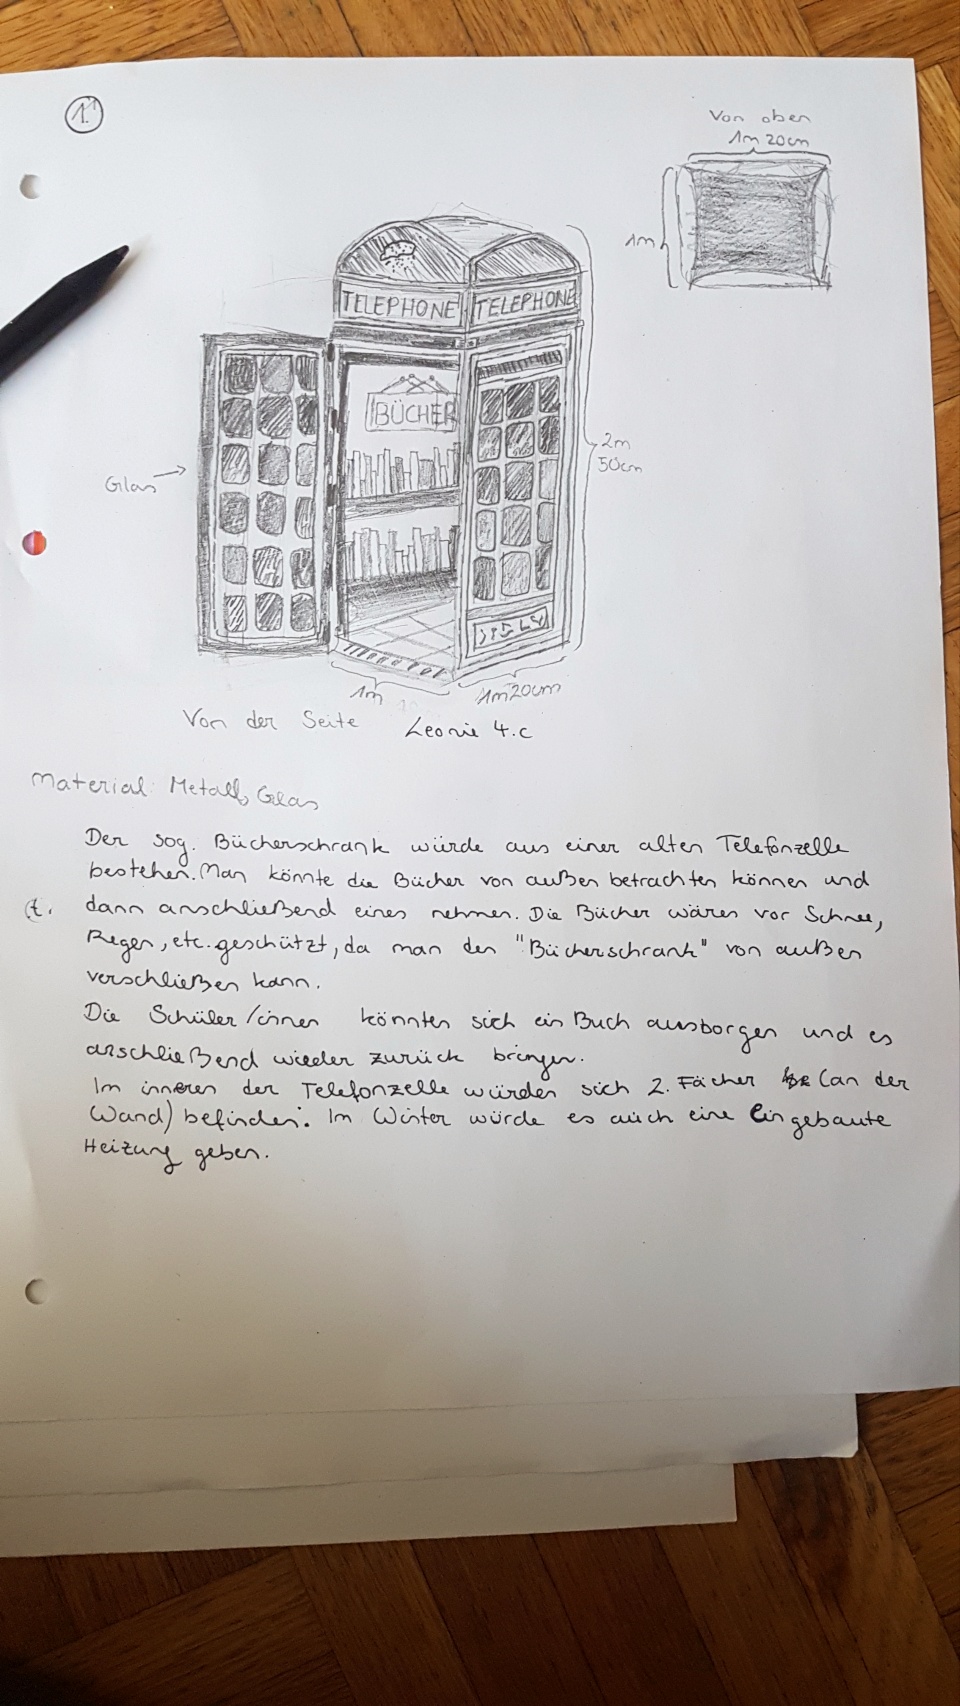 1.
Von oben
1m 20cm
1m
TELEPHONE TELEPHONE
BÜCHER
Glas
2m
50cm
1m
1m20cm
Von der Seite Leonie 4.c
Material: Metall, Glas
Der sog. Bücherschrank würde aus einer alten Telefonzelle
bestehen. Man könnte die Bücher von außen betrachten können und
t. dann anschließend eines nehmen. Die Bücher wären vor Schnee,
Regen, etc. geschützt, da man den "Bücherschrank" von außen
verschließen kann.
Die Schüler/innen könnten sich ein Buch ausborgen und es
anschließend wieder zurück bringen.
Im inneren der Telefonzelle würden sich 2. Fächer (an der
Wand) befinden. Im Winter würde es auch eine Eingebaute
Heizung geben.